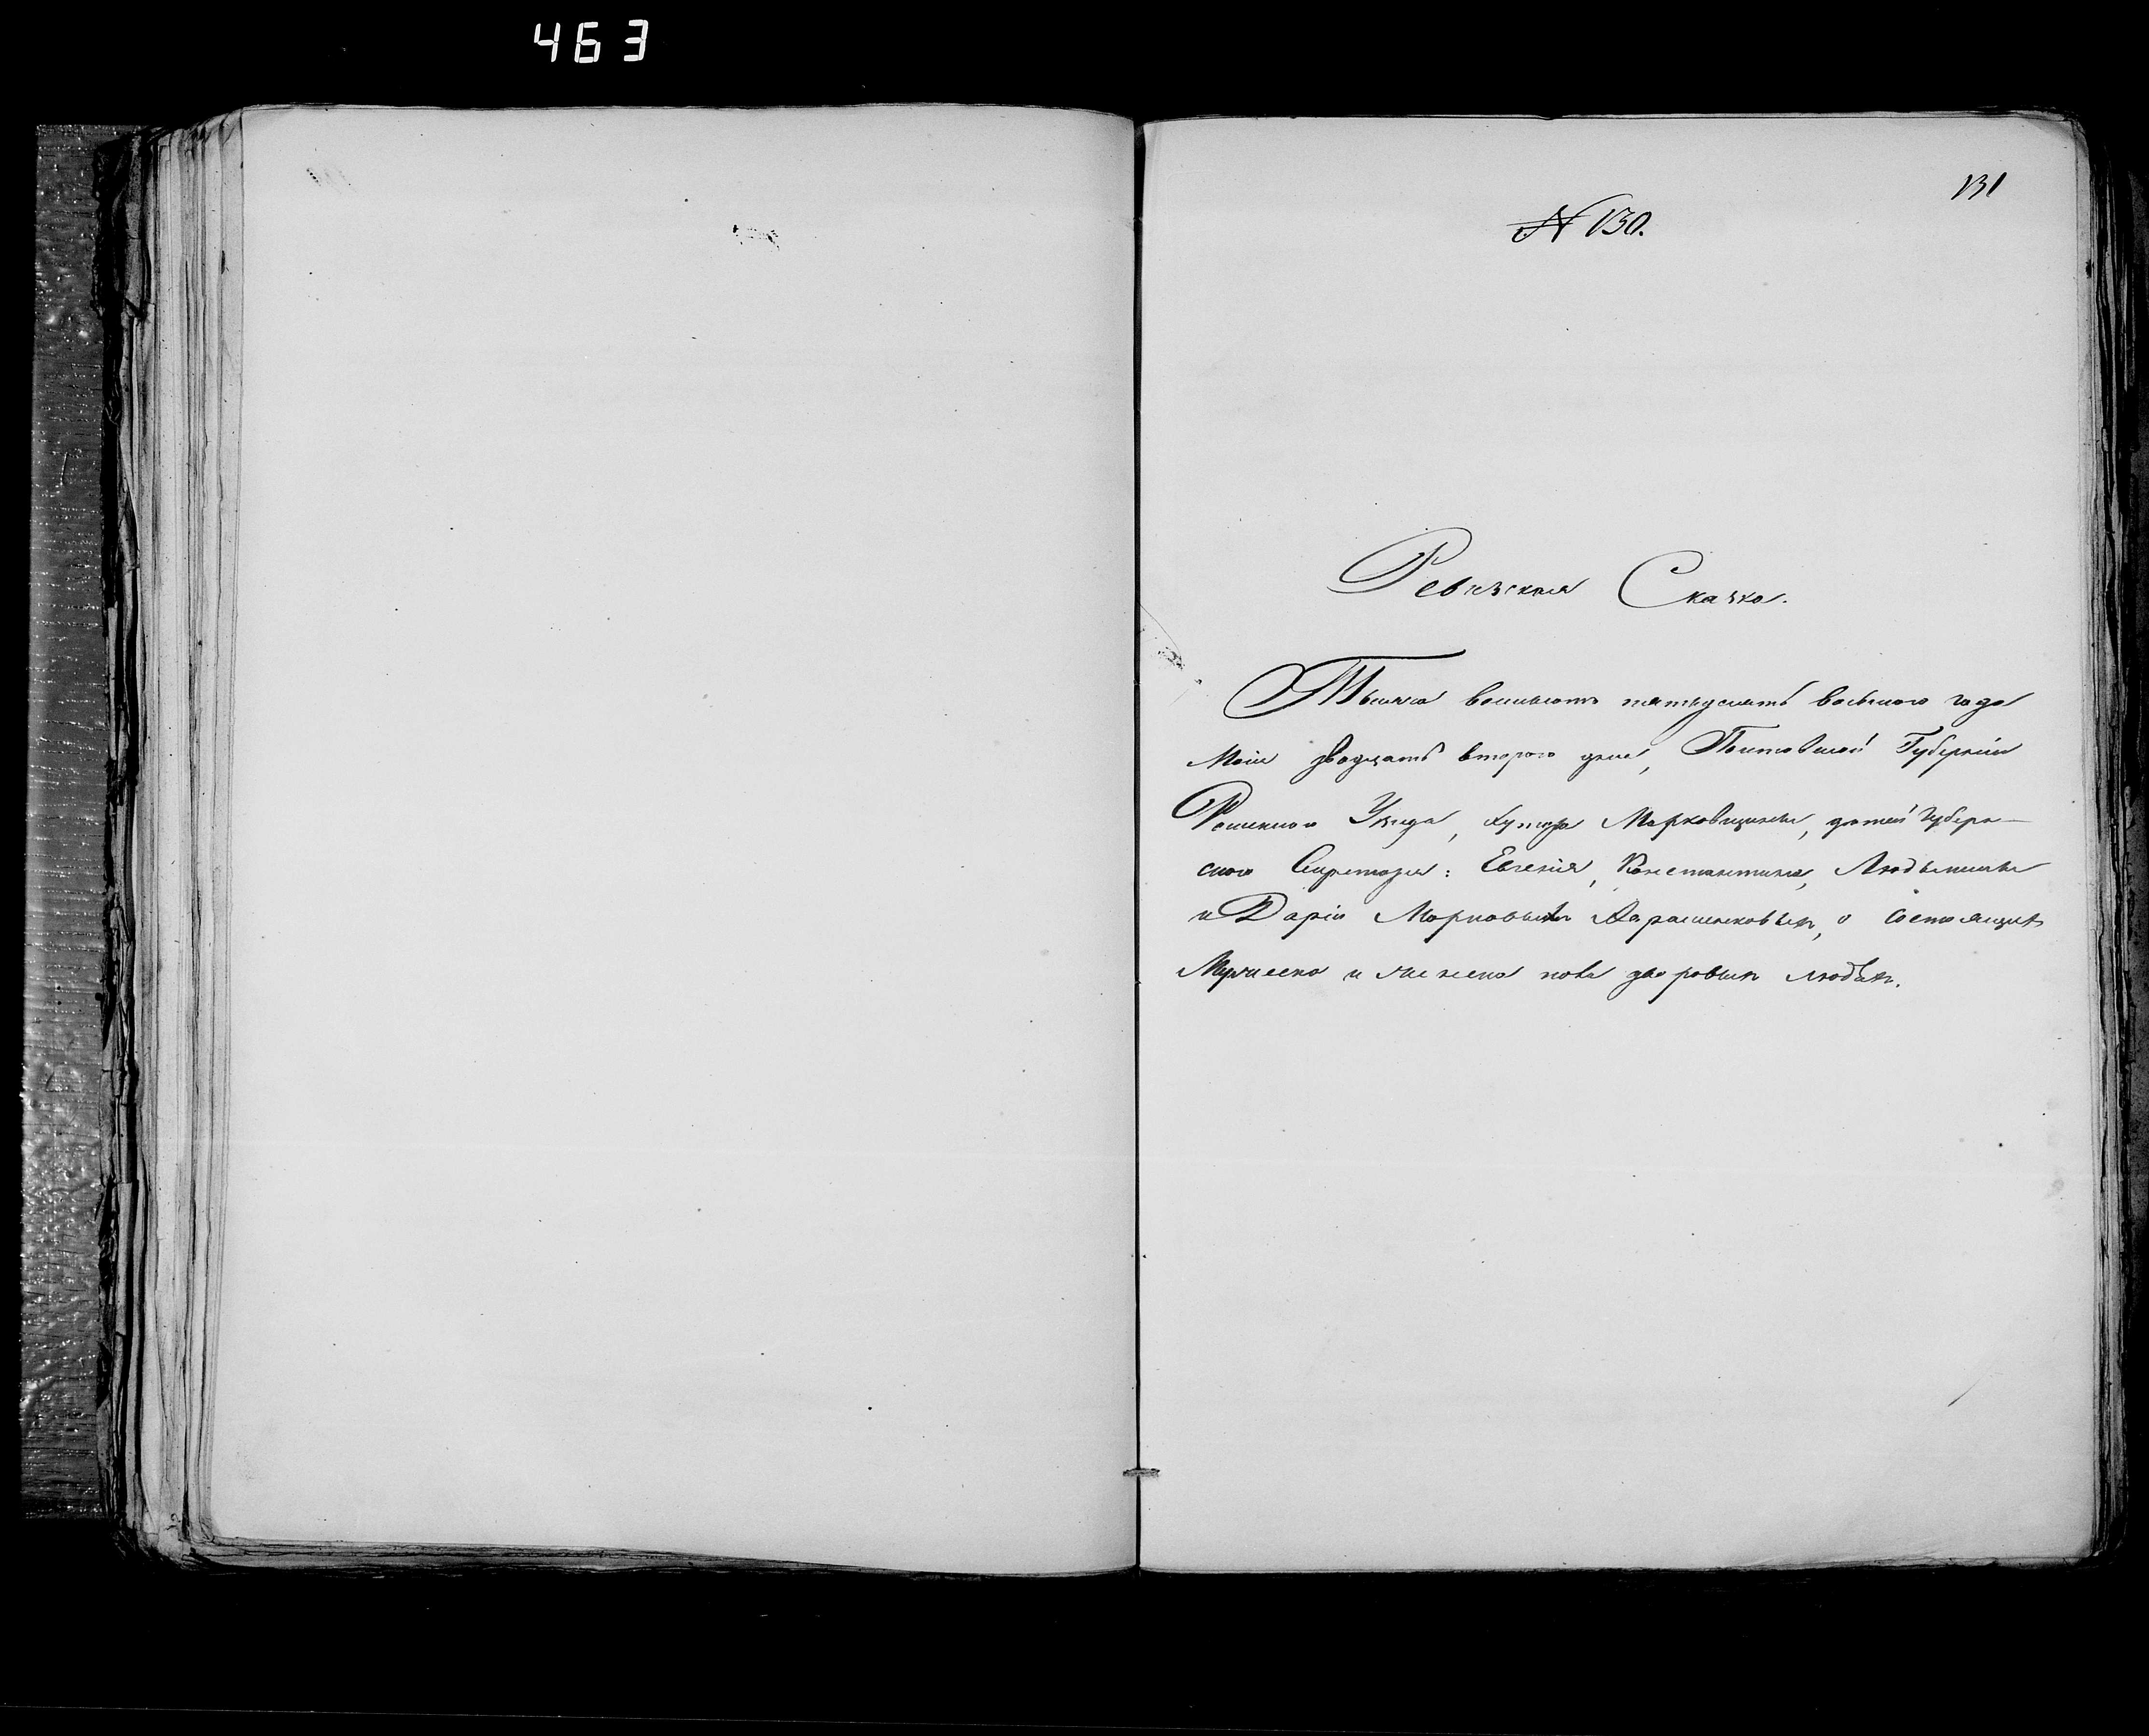 463
131
№ 130.
Ревизская Сказка.
Тысяча восемьсотъ пятьдесятъ восьмого года
Маія двадцать втораго дня, Полтавской Губерніи
Роменскаго Уѣзда, хутора Марковщины, дѣтей Губерн-
скаго Секретаря: Евгенія, Константина, Людьмилы
и Даріи Марковыхъ о состоящихъ
Мужеска и женска пола дворовыхъ людѣхъ.